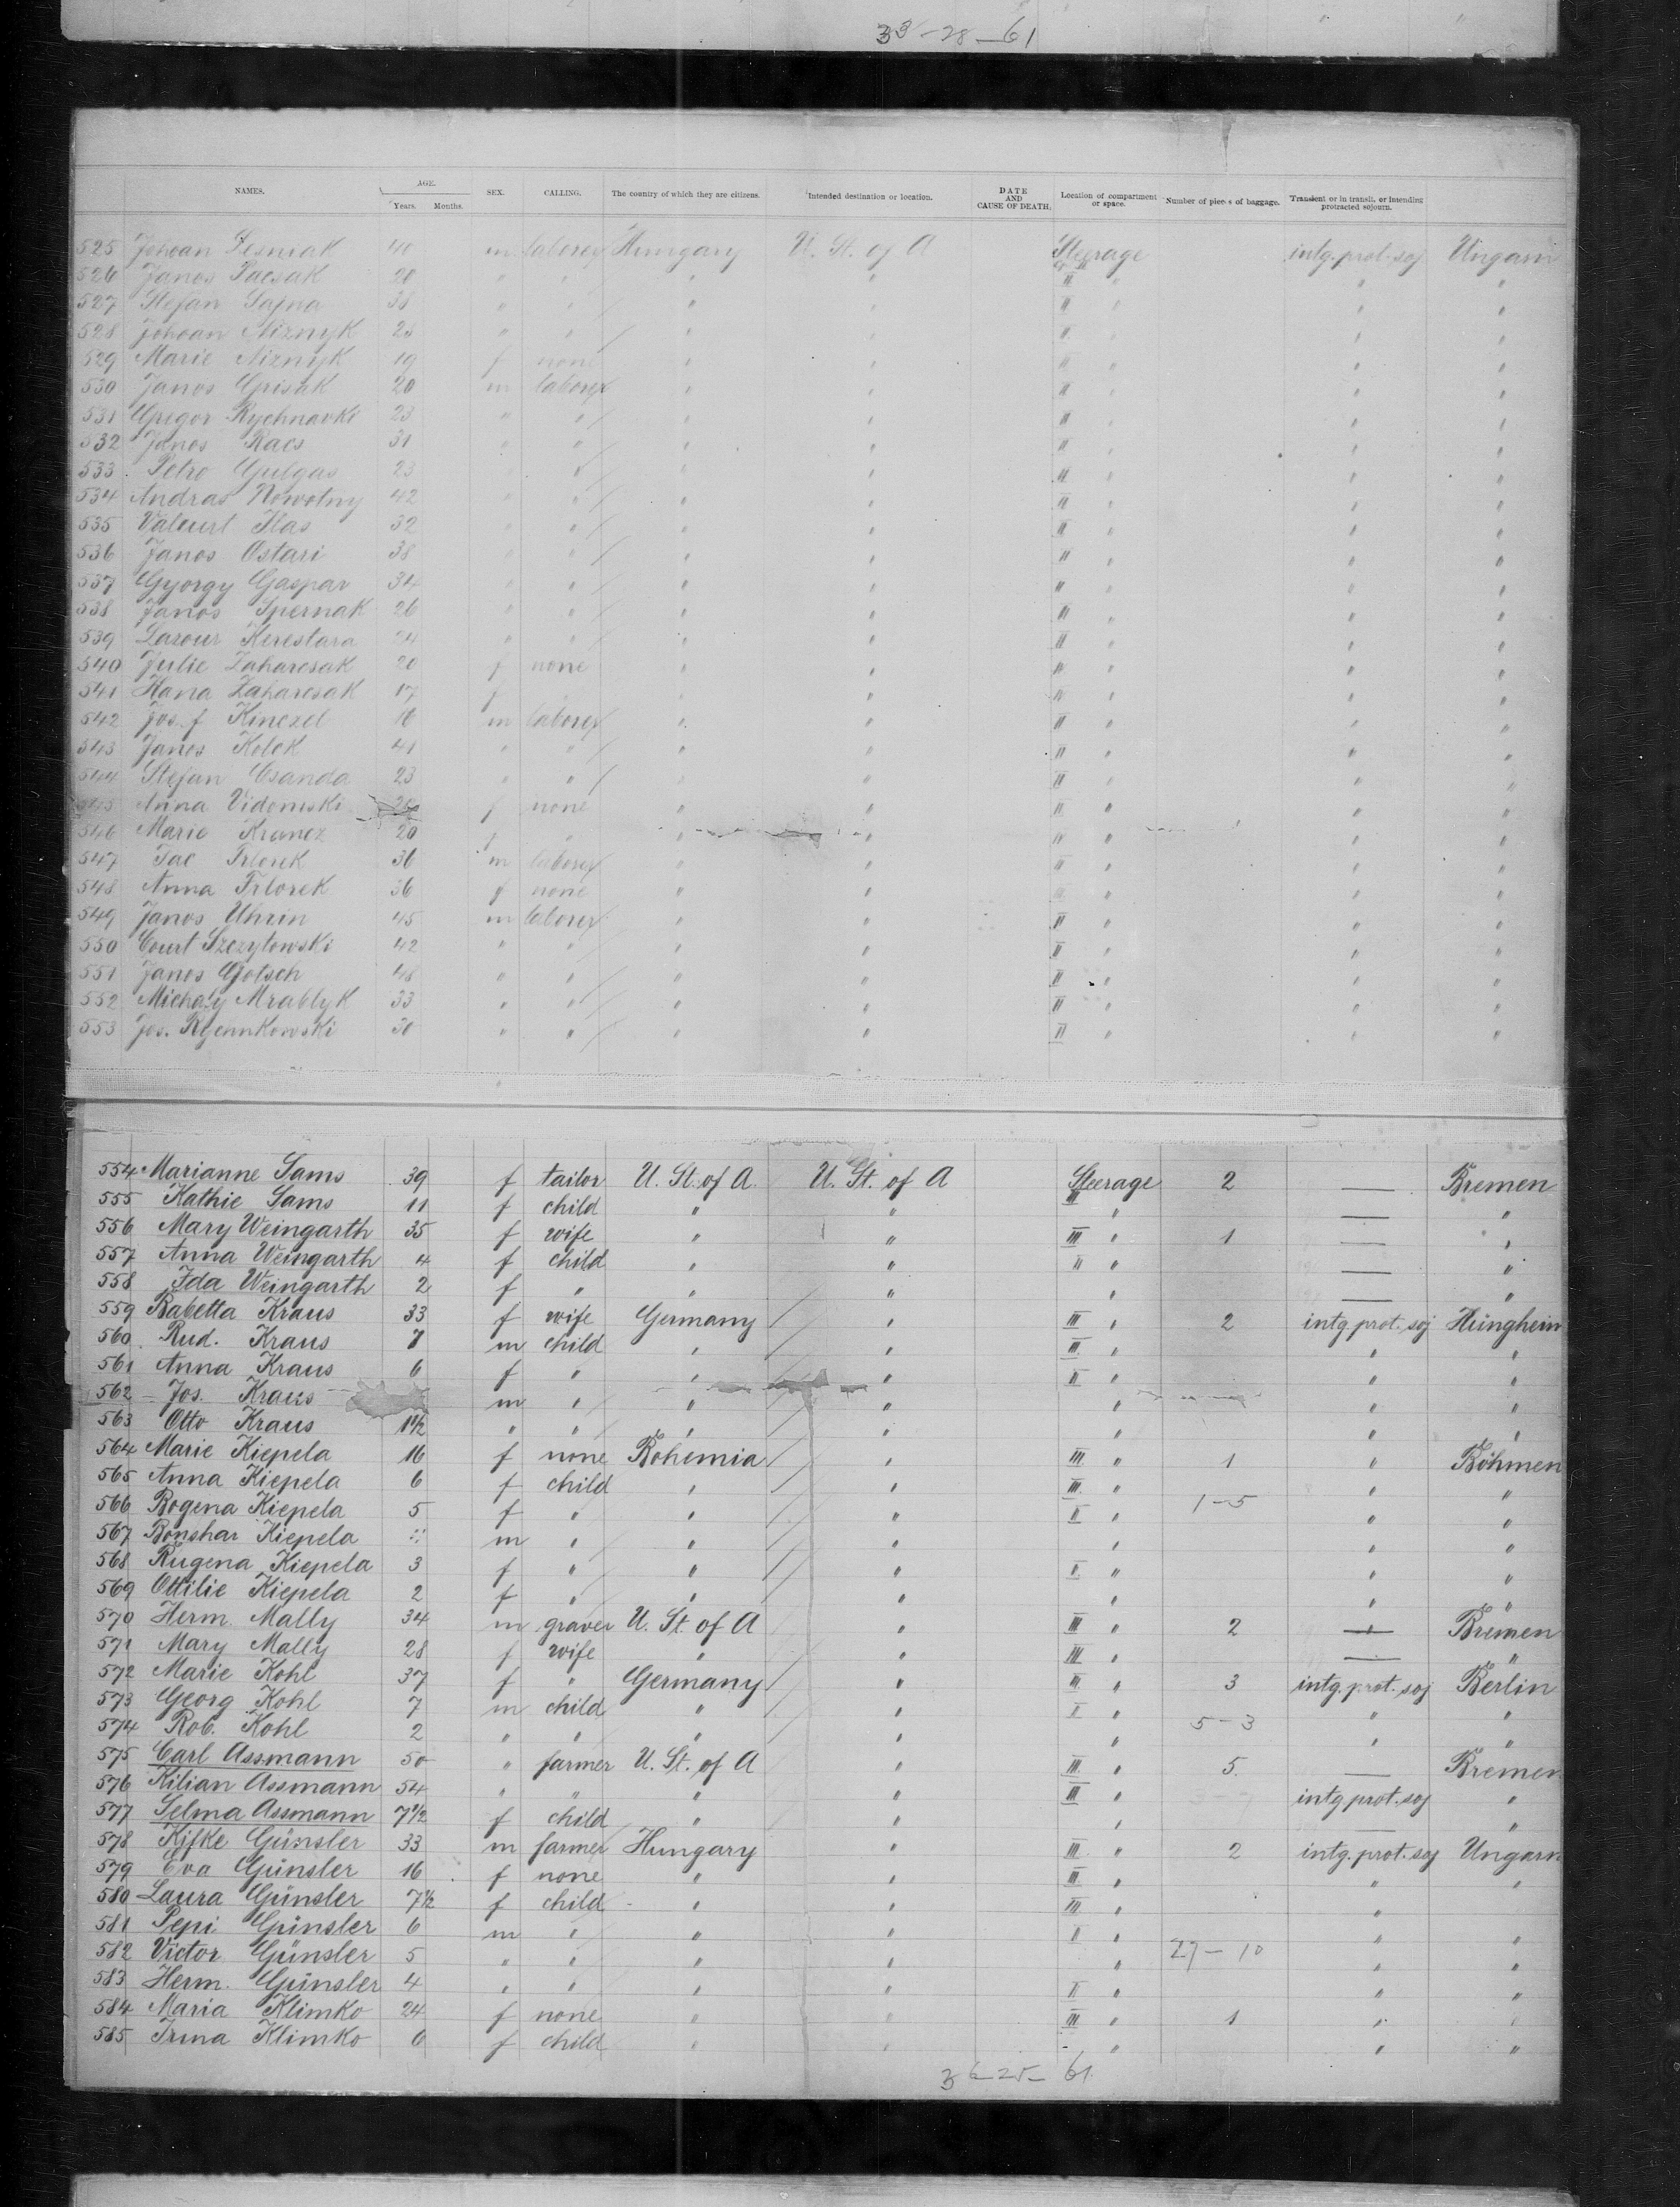 33-28-61
NAMES. AGE. Years. Months. SEX. CALLING. The country of which they are citizens. Intended destination or location. DATE AND CAUSE OF DEATH. Location of compartment or space. Number of pieces of baggage. Transient or in transit, or intending protracted sojourn.
525 Johoan Lesniak 40 m laborer Hungary U. St. of A Steerage intg. prot. soj Ungarn
526 Janos Pacsak 20 " " " " II " " "
527 Stefan Sajna 38 " " " " II " " "
528 Johoan Niznyk 25 " " " " II " " "
529 Marie Niznyk 19 f none " " II " " "
530 Janos Grisak 20 m laborer " " II " " "
531 Gregor Rychnavki 23 " " " " II " " "
532 Janos Racs 31 " " " " II " " "
533 Petro Gulgas 23 " " " " II " " "
534 Andras Nowotny 42 " " " " II " " "
535 Ilas 32 " " " " II " " "
536 Janos Ostari 38 " " " " II " " "
537 Gyorgy Gaspar 34 " " " " II " " "
538 Janos Spernak 26 " " " " II " " "
539 Kerestara 24 " " " " II " " "
540 Julie Zaharcsak 20 f none " " IV " " "
541 Hana Zaharcsak 17 f " " " IV " " "
542 Josef Kinczel 16 m laborer " " II " " "
543 Janos Kolek 41 " " " " II " " "
544 Stefan Csanda 23 " " " " II " " "
545 Anna Vidomski f none " " II " " "
546 Marie Krancz 20 f " " " IV " " "
547 Trlorek 36 m laborer " " II " " "
548 Anna Trlorek 36 f none " " " " "
549 Janos Uhrin 45 m laborer " " II " " "
550 Court Szczytowski 42 " " " " II " " "
551 Janos Gotsch 48 " " " " II " " "
552 Michaly Mrablyk 33 " " " " II " " "
553 Jos. Rychnkowski 30 " " " " II " " "
554 Marianne Sams 39 f tailor U. St. of A. U. St. of A Steerage 2 — Bremen
555 Kathie Sams 11 f child " " III " — "
556 Mary Weingarth 35 f wife " " III " 1 — "
557 Anna Weingarth 4 f child " " II " — "
558 Ida Weingarth 2 f " " " " — "
559 Babetta Kraus 33 f wife Germany " III " 2 intg. prot. soj Hünghein
560 Rud. Kraus 7 m child " " III " " "
561 Anna Kraus 6 f " " " II " " "
562 Jos. Kraus m " " " " " "
563 Otto Kraus 1½ " " " " " " "
564 Marie Kiepela 16 f none Bohemia " III " 1 " Böhmen
565 Anna Kiepela 6 f child " " III " " "
566 Bogena Kiepela 5 f " " " II " 1-5 " "
567 Bonshar Kiepela m " " " " " "
568 Rugena Kiepela 3 f " " " II " " "
569 Ottilie Kiepela 2 f " " " " " "
570 Herm. Mally 34 m graver U. St. of A " III " 2 — Bremen
571 Mary Mally 28 f wife " " III " — "
572 Marie Kohl 37 f " Germany " III " 3 intg. prot. soj Berlin
573 Georg Kohl 7 m child " " II " " "
574 Rob. Kohl 2 " " " " " 5-3 " "
575 Carl Assmann 50 " farmer U. St. of A " III " 5 — Bremen
576 Kilian Assmann 54 " " " " III " intg. prot. soj "
577 Selma Assmann 7½ f child " " " — "
578 Kifke Günsler 33 m farmer Hungary " III " 2 intg. prot. soj Ungarn
579 Eva Günsler 16 f none " " III " " "
580 Laura Günsler 7½ f child " " III " "
581 Pepi Günsler 6 m " " " II " " "
582 Victor Günsler 5 " " " " " 27-10 " "
583 Herm. Günsler 4 " " " " II " " "
584 Maria Klimko 24 f none " " III " 1 " "
585 Irma Klimko 6 f child " " " " "
36-25-61